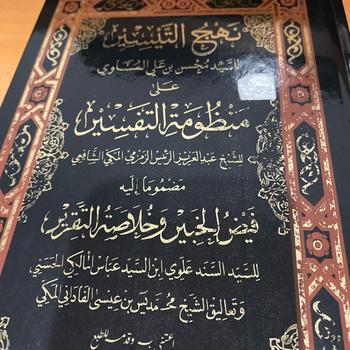 نَهْجُ التَّيْسِيْر
للسَّيِّد مُحْسِن بن عَلي المُسَاوى
عَلى
مَنْظُومَة التَّفْسِيْر
للشيخ عَبد العَزيز الرئيس الزمزمي المكي الشافعي
مَضْمُومًا إليه
فَيْضُ الخَبِيْر وَخُلَاصَة التَّقْرِيْر
للسيد السند علوي ابن السيد عباس المالكي الحسني
وتعاليق الشيخ محمد يس بن عيسى الفاداني المكي
اعتنى به وقدم له للطبع